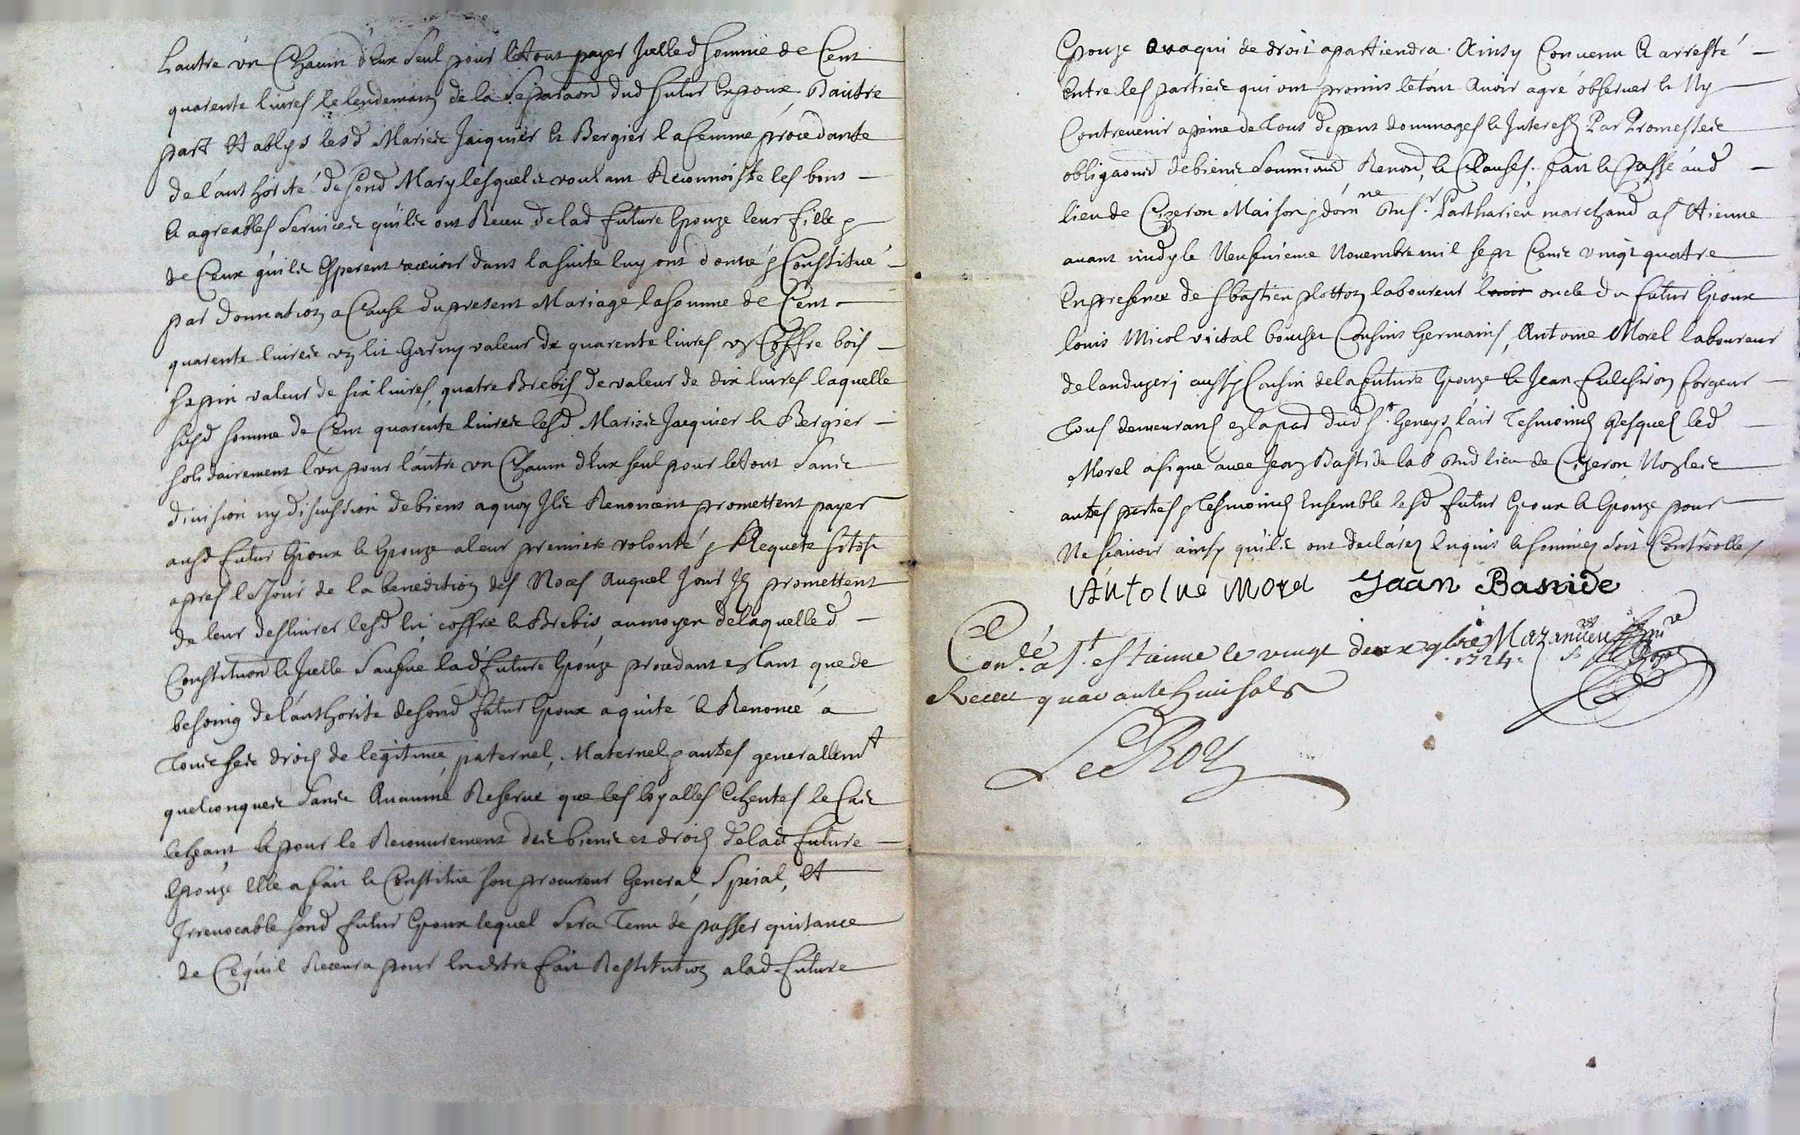 Lautre un Chacun d'Eux seul pour letout payer Jcelled somme de Cent
quarente livres le lendemain de la separaond dud futur Espoux, Dautre
part Etablys lesd Mariés Jacquier & Bergier la femme procedante
de l'authorité de sond Mary lesquels voulant Reconnoistre les bons
& agreables services quils ont Receu delad future Epouze leur fille &
de Ceux quils Esperent recevoir dans lasuite luy ont donné & Constitué
par donnation a Cause dupresent Mariage lasomme de Cent
quarente livres un lit Garny valeur de quarente livres un Coffre bois
sapin valeur de six livres, quatre Brebis de valeur de dix livres laquelle
susd somme de Cent quarente livres lesd Mariés Jacquier & Bergier
solidairement l'un pour l'autre un Chacun d'Eux seul pour letout sans
division ny discution de biens aquoy Ils Renoncent promettent payer
ausd futur Epoux & Epouze aleur premiere volonté & Requete sitost
apres le Jour de la benediction des Noces Auquel Jour Ils promettent
de leur deslivrer lesd lit, coffre & Brebis, aumoyen delaquelled
Constitution & Jcelle sauhue lad future Epouze procedant estant que de
besoing del'authorité desond futur Epoux aquité & Renoncé à
tous ses droits de legitime paternel, Maternel & autres generallemt
quelconques sans Aucune Reserve que les loyalles Echeutes le Cas
Echeant & pour le Recouvrement des biens et droits delad future
Epouze Elle afait & Constitué son procureur General, Special, et
Irrevocable sond futur Epoux lequel sera Tenu de passer quitance
de Cequil Recevra pour Endetre fait Restitution alad future
Epouze ou aqui de droit apartiendra. Ainsy Convenu & arresté
Entre les parties qui ont promis letout Avoir agré observer & Ny
Contrevenir apeine deTous depens dommages & Interests Par Promesses
obligaonds debiens Soumionds Renond, & Clauses. fait & Passé aud
lieu de Cizeron Maison & domne dusr. Partharieu marchand a st Etienne
avant midy le Neufvieme Novembre mil sept Cens vingt quatre
Enpresence de Sbastien plotton laboureur oncle du futur Epoux
louis Micol victal boucher Cousins Germains, Antoine Morel laboureur
delanduzery aussy Cousin delafuture Epouze & Jean fulchiron forgeur
Tous demeurants & lapar dudst. Geneys lair Tesmoins Desquels led
Morel asigné avec Jean Bastide lab dud lieu de Cizeron Nonles
autres partes & Tesmoins Ensemble lesd futur Epoux & Epouze pour
Ne scavoir ainsy quils ont declarés Enquis & sommés soit Controollés
Antoine Morel Jean Bastide
Conlé a st. estienne le vingt deux 9bre 1724.
Receu quarante huit sols
LeRoy